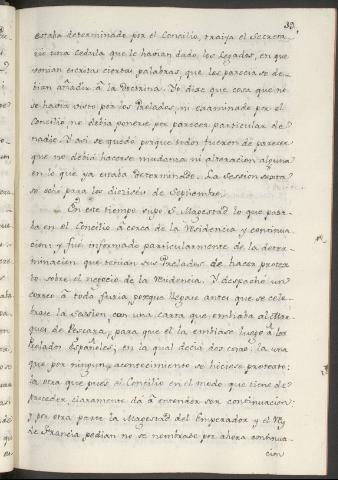 39.
estaba determinado por el Concilio, traìya el Secreta-
rio una Cedula que le havian dado los Legados, en que
venian escritas ciertas palabras, que les parecia se de-
bian añadir à la Doctrina. Yo dixe que cosa que no
se havia visto por los Prelados, ni examinado por el
Concilio, no debia ponerse por parecer particular de
nadie. Y asi se quedó porque todos fueron de parecer
que no debia hacerse mudanza ni alteracion alguna
en lo que ya estaba determinado. La Session sexta
se para los dieziseis de Septiembre.
En este tiempo supo S. Magestad lo que pasa-
ba en el Concilio à cerca de la Residencia y continua-
cion; y fue informado particularmente de la deter-
minacion que tenian sus Prelados de hacer protex-
to sobre el negocio de la Residencia. Y despachó un
correo à toda furia porque llegase antes que se cele-
brase la Session, con una carta que embiaba al Mar-
ques de Pescara, para que el la embiase luego à los
Prelados Españoles, en la qual decia dos cosas: la una
que por ningun acontecimiento se hiciese protexto;
la otra que pues el Concilio en el modo que tiene de
proceder, claramente da à entender ser continuacion;
y por otra parte la Magestad del Emperador y el Rey
de Francia pedian no se nombrase por ahora continua-
cion